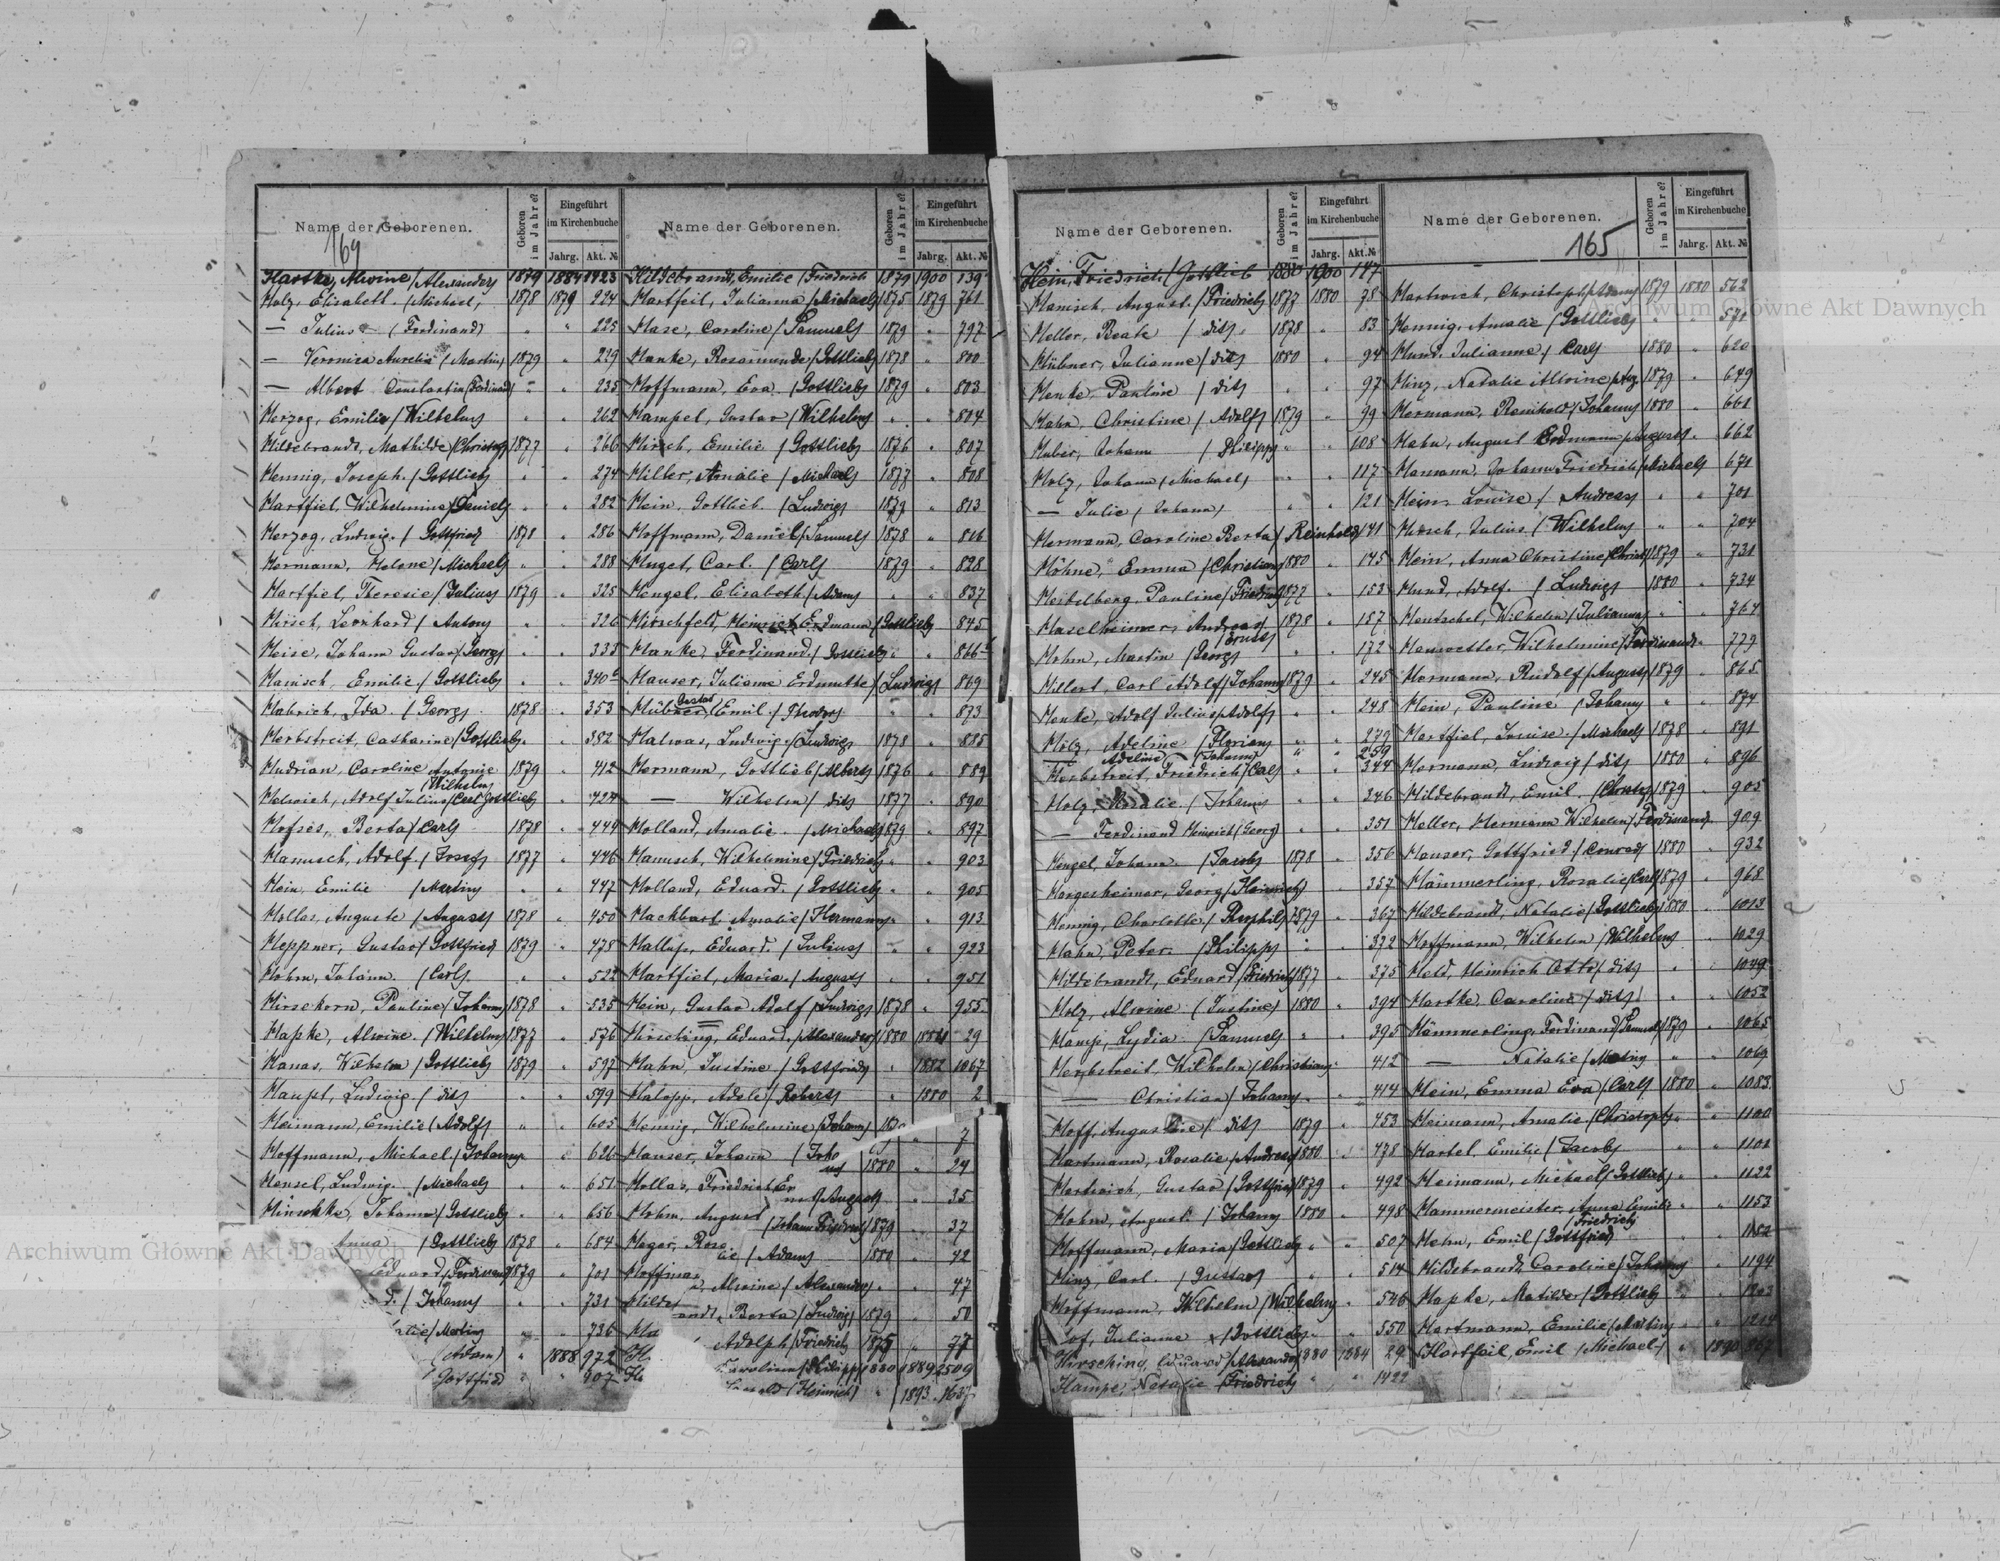 Name der Geborenen.
Geboren im Jahre?
Eingeführt im Kirchenbuche
Jahrg.
Akt. №
Name der Geborenen.
Geboren im Jahre?
Eingeführt im Kirchenbuche
Jahrg.
Akt. №
164
Hartke, Alwine /Alexander/ 1879 1884 1923
Holz, Elisabeth. /Michael/ 1878 1879 224
— Julius (Ferdinand) " " 225
— Veronica Aurelia /Martin/ 1879 " 229
— Albert Constantin (Ferdinand) " " 235
Herzog, Emilie /Wilhelm/ " " 262
Hildebrandt, Mathilde /Christof/ 1877 " 266
Hennig, Joseph. /Gottlieb/ " " 274
Hartfiel, Wilhelmine /Daniel/ " " 282
Herzog, Ludwig. /Gottfried/ 1878 " 286
Hermann, Helene /Michael/ " " 288
Hartfiel, Theresie /Julius/ 1879 " 325
Hirsch, Leonhard /Anton/ " " 326
Heise, Johann Gustav /Georg/ " " 333
Hanisch, Emilie /Gottlieb/ " " 340
Habrich, Ida. /Georg/ 1878 " 353
Herbstreit, Catharine /Gottlieb/ " " 382
Hudrian, Caroline Antonie /Wilhelm/ 1879 " 412
Helwich, Adolf Julius /Carl Gottlieb/ " 424
Berta /Carl/ 1878 " 449
Hanusch, Adolf. /Josef/ 1877 " 446
Hein Emilie /Martin/ " " 447
Hollas, Auguste /August/ 1878 " 450
Heppner, Gustav /Gottfried/ 1879 " 478
Hohm, Johann. /Carl/ " " 522
Hirsekorn, Pauline /Johann/ 1878 " 535
Hapke, Alwine. /Wilhelm/ 1877 " 576
Hanas, Wilhelm /Gottlieb/ 1879 " 597
Haupt, Ludwig /dito/ " " 599
Heimann, Emilie /Adolf/ " " 605
Hoffmann, Michael /Johann/ " " 626
Hensel, Ludwig. /Michael/ " " 651
Hinschke, Johann /Gottlieb/ " " 656
Anna /Gottlieb/ 1878 " 684
Eduard /Ferdinand/ 1879 " 701
/Johann/ " " 731
/Martin/ " " 736
(Adam) " 1888 972
Gottfried " " 907
Hildebrandt, Emilie /Friedrich/ 1879 1900 139
Hartfeil, Julianna /Michael/ 1875 1879 761
Hase, Caroline /Samuel/ 1879 " 797
Hanke, Rosamunde /Gottlieb/ 1878 " 800
Hoffmann, Eva. /Gottlieb/ 1879 " 803
Hampel, Gustav /Wilhelm/ " " 804
Hirsch, Emilie /Gottlieb/ 1876 " 807
Hilber, Amalie /Michael/ 1877 " 808
Hein, Gottlieb. /Ludwig/ 1879 " 813
Hoffmann, Daniel /Samuel/ 1878 " 816
Huget, Carl. /Carl/ 1879 " 828
Hengel, Elisabeth /Adam/ " " 837
Hirschfeld, Heinrich Erdmann /Gottlieb/ 845
Hanke, Ferdinand /Gottlieb/ " " 866
Hauser, Juliane Erdmuthe /Ludwig/ 869
Hübner, Gustav Emil /Theodor/ " " 873
Halwas, Ludwig. /Ludwig/ 1878 " 885
Hermann, Gottlieb /Albert/ 1876 " 889
— Wilhelm /dito/ 1877 " 890
Holland, Amalie. /Michael/ 1879 " 897
Hanusch, Wilhelmine /Friedrich/ " " 903
Holland, Eduard. /Gottlieb/ " " 905
Hackbart Amalie /Hermann/ " " 913
Eduard. /Julius/ " " 923
Hartfiel, Maria /August/ " " 951
Hein, Gustav Adolf /Ludwig/ 1878 " 955
Hirsching, Eduard. /Alexander/ 1880 1884 29
Hahn, Justine /Gottfried/ " 1882 1067
Adele /Robert/ " 1880 2
Hennig, Wilhelmine /Johann/ 7
Hauser, Johann /Johann/ 1880 " 24
Hollas, Friedrich Ernst /August/ " " 35
Hohm, August /Johann Friedrich/ 1879 " 37
Heger, Rosalie /Adam/ 1880 " 42
Hoffmann, Alwine /Alexander/ " " 47
Hildebrandt, Berta /Ludwig/ 1879 " 50
Adolph /Friedrich/ 1878 " 77
Karoline /Philipp/ 1880 1889 2509
(Heinrich) " 1893 1637
Name der Geborenen.
Geboren im Jahre?
Eingeführt im Kirchenbuche
Jahrg.
Akt. №
Name der Geborenen.
Geboren im Jahre?
Eingeführt im Kirchenbuche
Jahrg.
Akt. №
165
Hein, Friedrich /Gottlieb 1880 1900 147
Hanisch, August. /Friedrich/ 1877 1880 78
Heller, Beate /dito/ 1878 " 83
Hübner, Julianne /dito/ 1880 " 94
Henke, Pauline /dito/ " " 97
Hahn, Christine /Adolf/ 1879 " 99
Huber, Johann /Philipp/ " " 108
Holz, Johann /Michael/ " " 117
— Julie /Johann/ " " 121
Hermann, Caroline Berta /Reinhold/ 141
Höhne, Emma /Christian/ 1880 " 145
Heidelberg, Pauline /Friedrich/ 1877 " 153
Haselheimer, Andreas /Ernst/ 1878 " 157
Hohm, Martin /Georg/ " " 172
Hillert, Carl Adolf /Johann/ 1879 " 245
Henke, Adolf Julius /Adolf/ " " 248
Holz, Adeline /Florian/ " " 279
— Adeline (Johann) " " 259
Herbstreit, Friedrich /Carl/ " " 344
Holz, Rosalie. /Johann/ " " 346
— Ferdinand Heinrich (Georg) " " 351
Hengel, Johann. /Jacob/ 1878 " 356
Horgesheimer, Georg /Heinrich/ " 357
Hennig, Charlotte /Theophil/ 1879 " 367
Hahn, Peter. /Philipp/ " " 372
Hildebrandt, Eduard /Friedrich/ 1877 " 375
Holz, Alwine (Justine) 1880 " 394
Hamp, Lydia /Samuel/ " " 395
Herbstreit Wilhelm /Christian/ " 412
— Christian /Johann/ " " 414
Hoff, Auguste /dito/ 1879 " 453
Hartmann, Rosalie /Andreas/ 1880 " 478
Hartwich, Gustav /Gottfried/ 1879 " 492
Hohm, August. /Johann/ 1880 " 498
Hoffmann, Maria /Gottlieb/ " " 507
Hinz, Carl. /Gustav/ " " 514
Hoffmann, Wilhelm /Wilhelm/ " 546
Hof, Julianne /Gottlieb/ " " 550
Hirsching, Eduard /Alexander/ 1880 1884 29
Hampe, Natalie /Friedrich/ " " 1422
Hartwich, Christoph /Adam/ 1879 1880 562
Hennig, Amalie /Gottlieb/ " " 571
Hund. Julianne / Carl/ 1880 " 620
Hinz, Natalie Alwine 1879 " 649
Hermann, Reinhold /Johann/ 1880 " 661
Hahn, August Erdmann /August/ " 662
Hamann, Johann Friedrich /Michael/ 671
Hein, Louise / Andreas/ " " 701
Hirsch, Julius /Wilhelm/ " " 704
Hein, Anna Christine /Christ/ 1879 " 731
Hund, Adolf. / Ludwig/ 1880 " 734
Hentschel, Wilhelm /Julianna/ " " 764
Wilhelmine /Ferdinand/ " 779
Hermann, Rudolf /August/ 1879 " 865
Hein, Pauline /Johann/ " " 874
Hartfiel, Louise. /Michael/ 1878 " 891
Hermann, Ludwig /dito/ 1880 " 896
Hildebrandt, Emil. /Christof/ 1879 " 905
Heller, Hermann Wilhelm /Ferdinand/ 909
Hauser, Gottfried /Conrad/ 1880 " 932
Hämmerling, Rosalie /Carl/ 1879 " 968
Hildebrandt, Natalie /Gottlieb/ 1880 " 1013
Hoffmann, Wilhelm /Wilhelm/ " 1029
Held, Heinrich Otto /dito/ " " 1049
Hartke Caroline /dito/ " " 1052
Hämmerling, Ferdinand /Samuel/ 1879 " 1065
— Natalie /Martin/ " " 1069
Hein, Emma Eva /Carl/ 1880 " 1083
Heimann, Amalie /Christoph/ " " 1100
Hartel Emilie /Jacob/ " " 1101
Heimann, Michael /Gottlieb/ " " 1122
Hammermeister, Anna Emilie /Friedrich/ " 1153
Hehn, Emil /Gottfried/ " " 1152
Hildebrandt, Caroline /Johann/ " 1194
Hapke, Matilde /Gottlieb/ " " 1203
Hartmann, Emilie /Martin/ " " 1214
Hartfeil, Emil /Michael/ " 1890 867
Archiwum Główne Akt Dawnych
Archiwum Główne Akt Dawnych